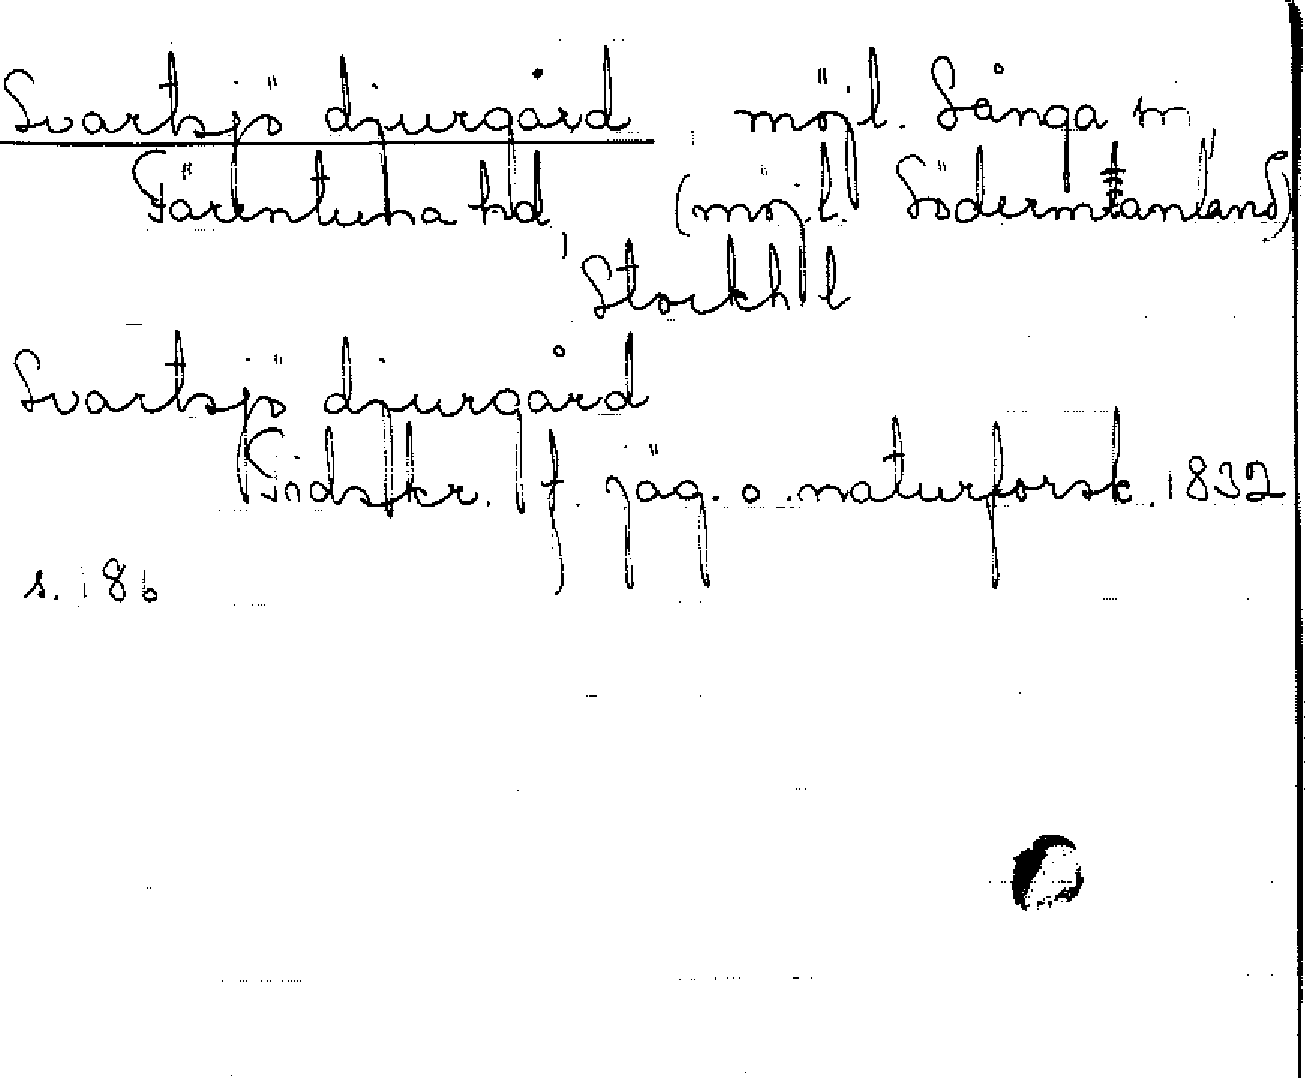 Svartsjö djurgård, möjl. Sånga sn,
Färentuna hd, (möjl. Södermanland)
Stockh l
Svartsjö djurgård
Tidskr. f. jäg. o. naturforsk. 1832
s. 186